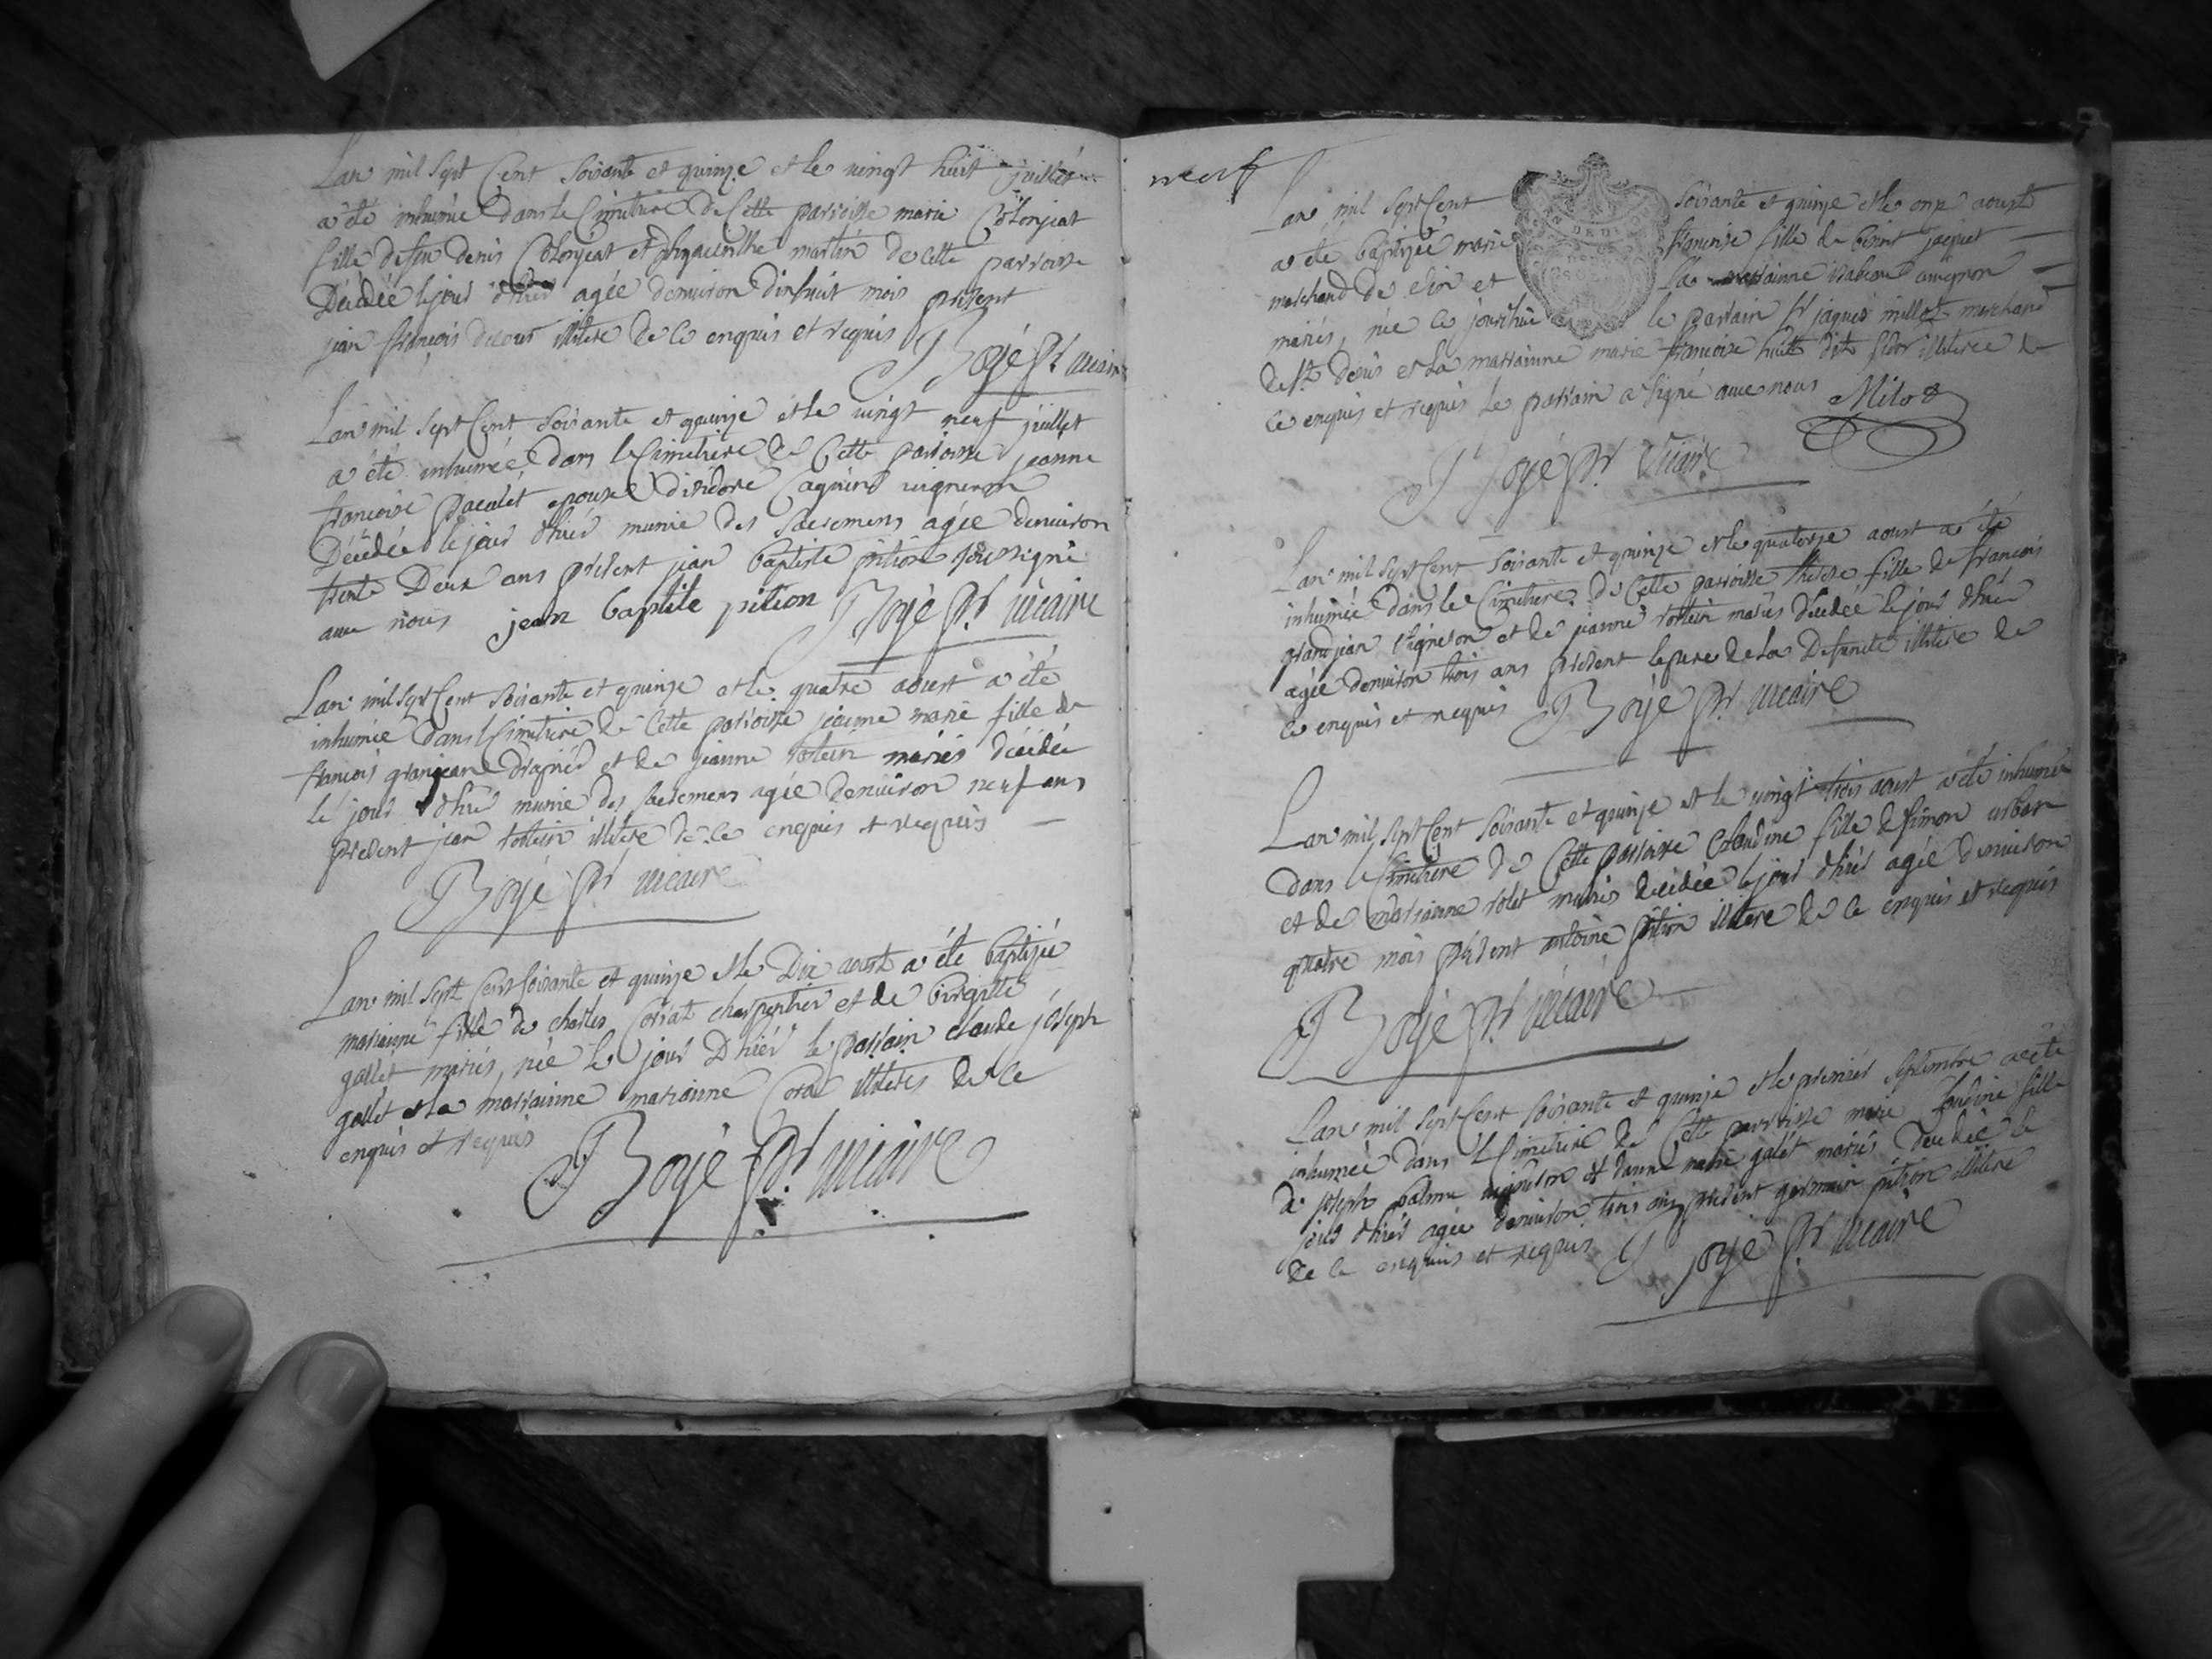 Lan mil sept Cent soixante et quinze et le vingt huit juillet
a été inhumée dans le Cimetiere de Cette parroisse marie Colonjeat
fille de feu denis Colonjeat et martin de cette parroisse
Décédée le jour d'hier agée denviron dixhuit mois présent
jean françois illitere de ce enquis et requis
J Bojé ptr vicaire
Lan mil sept Cent soixante et quinze et le vingt neuf juillet
a été inhumée dans le Cimetiere de Cette parroisse jeanne
francoise pacalet epouse disidore vigneron
Décédée le jour d'hier munie des sacremens agée denviron
trente Deux ans présent jean baptiste pition soussigné
avec nous jean baptiste pition J Bojé ptr vicaire
Lan mil sept Cent soixante et quinze et le quatre aoust a été
inhumée dans le Cimetiere de Cette parroisse jeanne marie fille de
francois granjean et de jeanne mariés décédée
le jour d'hier munie des sacremens agée denviron neuf ans
présent jean illitere de ce enquis et requis
J Bojé ptr vicaire
Lan mil sept Cent soixante et quinze et le Dix aoust a été baptizée
marianne fille de charles charpentier et de birgitte
gallet mariés, née le jour D'hier le parrain claude joseph
gallet et la marrainne marianne illiteres de ce
enquis et requis
J Bojé ptr vicaire
neuf
Lan mil sept Cent soixante et quinze et le onze aoust
a été baptizée marie francoise fille de jaquet
marchand de et
mariés, née ce jourdhui le parrain Sr jaques millot marchand
de St denis et la marrainne marie francoise dite illiterée de
ce enquis et requis le parrain a signé avec nous Milot
J Bojé ptr vicaire
Lan mil sept Cent soixante et quinze et le quatorze aoust a été
inhumée dans le Cimetiere de Cette parroisse therese fille de francois
grandjean vigneron et de jeanne mariés décédée le jour d'hier
agée denviron trois ans présent le pere de la Defuncte illitere de
ce enquis et requis J Bojé ptr vicaire
Lan mil sept Cent soixante et quinze et le vingt trois aoust a été inhumée
dans le Cimetiere de Cette parroisse claudine fille de simon
et de marianne rolet mariés décédée le jour d'hier agée denviron
quatre mois présent antoine pition illitere de ce enquis et requis
J Bojé ptr vicaire
Lan mil sept Cent soixante et quinze et le premier septembre a été
inhumée dans le Cimetiere de Cette parroisse marie fille
de joseph vigneron et danne marie galet mariés décédée le
jour d'hier agée denviron trois ans présent germain pition illitere
de ce enquis et requis J Bojé ptr vicaire